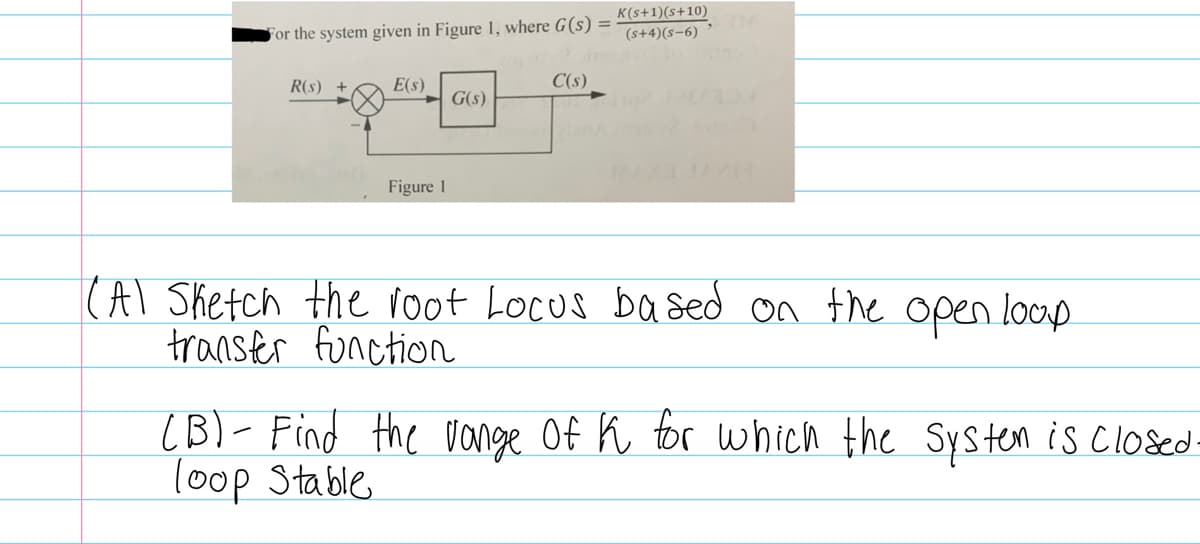 For the system given in Figure 1, where G(s) = K(s+1)(s+10)/(s+4)(s−6),
R(s) + E(s) G(s) C(s)
−
Figure 1
(A) Sketch the root Locus based on the open loop
transfer function
(B)- Find the range of K for which the system is closed-
loop Stable